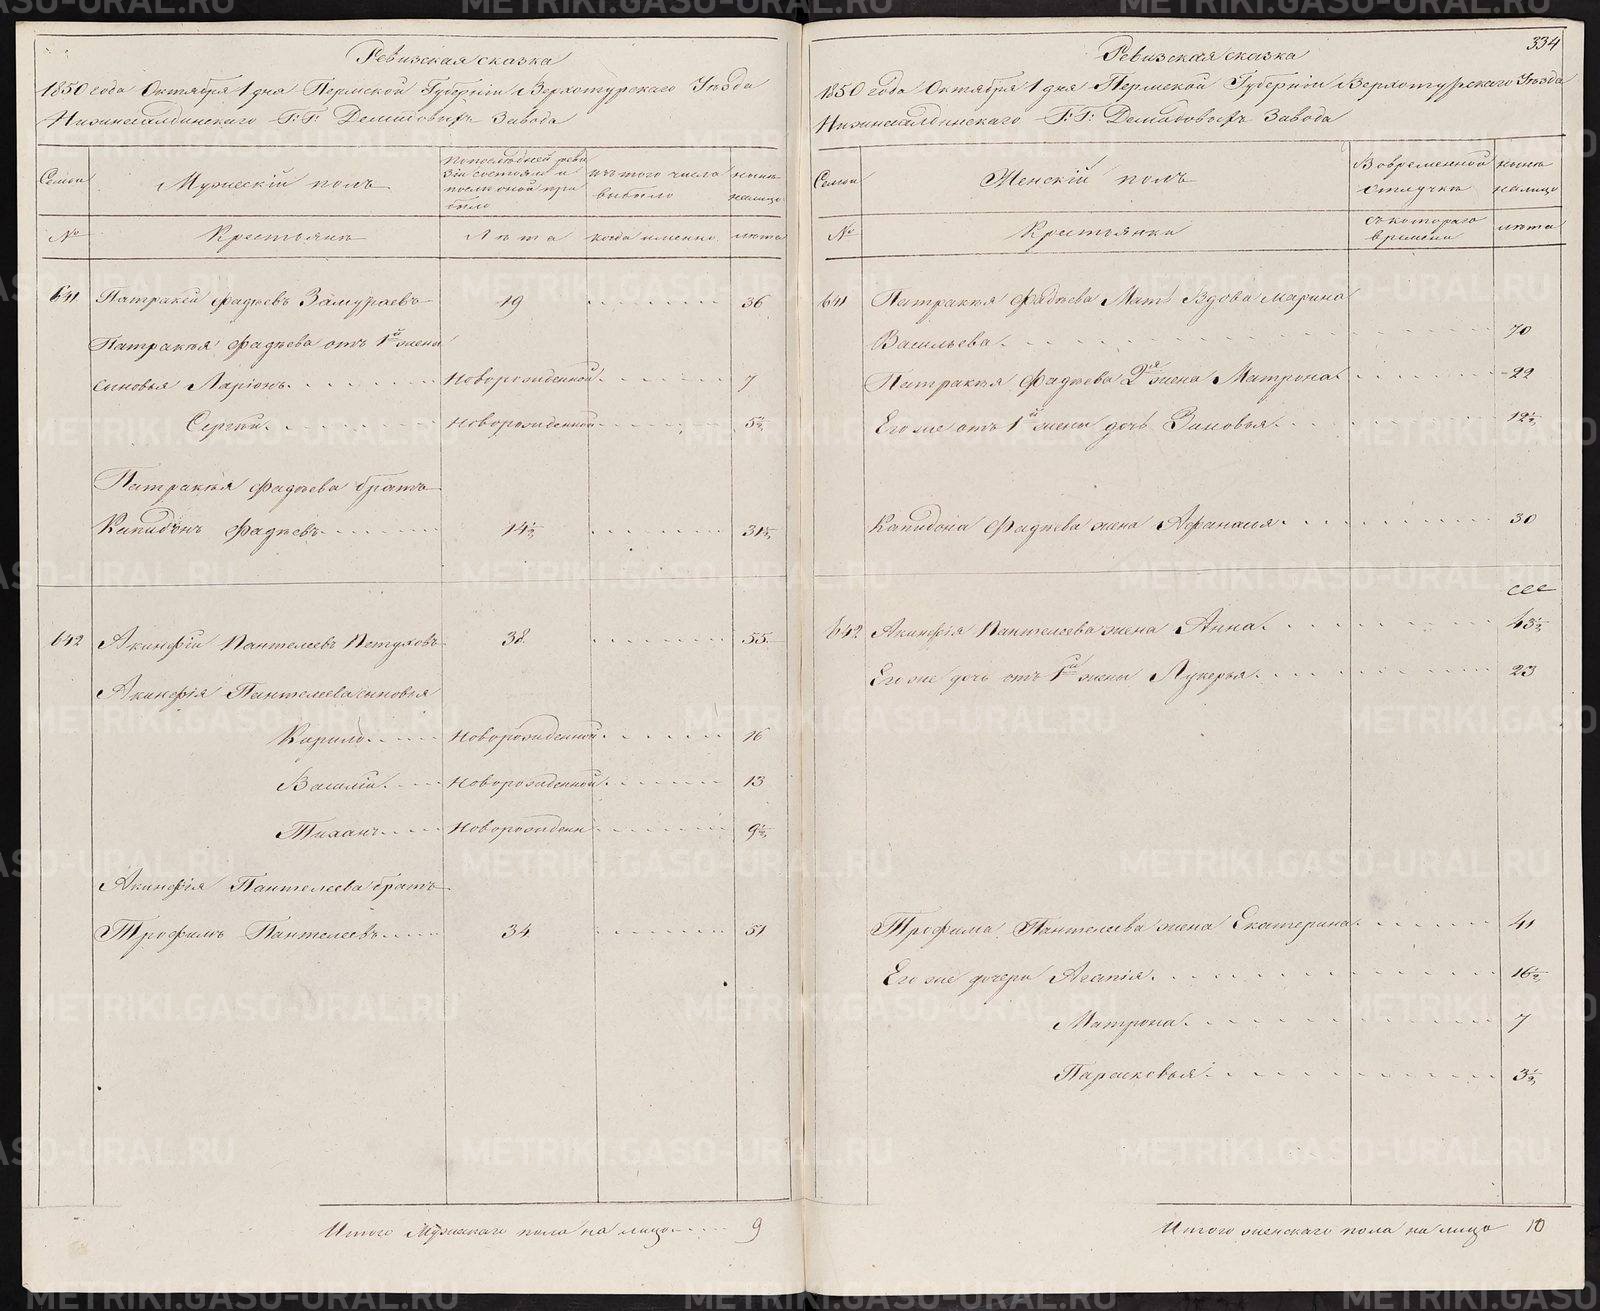 Ревизская сказка
1850 года Октября 1 дня Пермской Губернiи Верхотурскаго Уѣзда
Нижнесалдинскаго Г.Г. Демидовыхъ Завода
Семьи
Мужескiй полъ
По последней реви
зiи состояло и
после оной при
было
изъ того числа
выбыло
нынѣ
налицо
№
Крестьянъ
Лѣта
когда именно
лѣта
641 Патракей Фадѣевъ Замураевъ 19 36
Патракѣя Фадѣева отъ 1й жены
сыновья Ларiонъ Новорожденной 7
Сергѣй Новорожденной 5 1/2
Патракѣя Фадѣева братъ
Капидонъ Фадѣевъ 14 1/2 31 1/2
642 Акинфiй Пантелеевъ Петуховъ 38 55
Акинфiя Пантелеева сыновья
Кирило Новорожденной 16
Василiй Новорожденной 13
Тиханъ Новорожден 9 1/2
Акинфiя Пантелеева братъ
Трофимъ Пантелеевъ 34 51
Итого Мужескаго пола на лицо 9
334
Ревизская сказка
1850 года Октября 1 дня Пермской Губернiи Верхотурскаго Уѣзда
Нижнесалдинскаго Г.Г. Демидовыхъ Завода
Семьи
Женскiй полъ
Во временной
отлучкѣ
нынѣ
налицо
№
Крестьянки
съ котораго
времени
лѣта
641 Патракѣя Фадѣева Мать Вдова Марина
Васильева 70
Патракѣя Фадѣева 2я жена Матрона 22
Его же отъ 1й жены дочь Зиновья 12 1/2
Капидона Фадѣева жена Афанасья 30
642 Акинфiя Пантелеева жена Анна 45 1/2
Его же дочь отъ 1й жены Лукерья 23
Трофима Пантелеева жена Екатерина 41
Его же дочери Агапiя 16 1/2
Матрона 7
Парасковья 3 1/2
Итого женскаго пола на лицо 10
METRIKI.GASO-URAL.RU